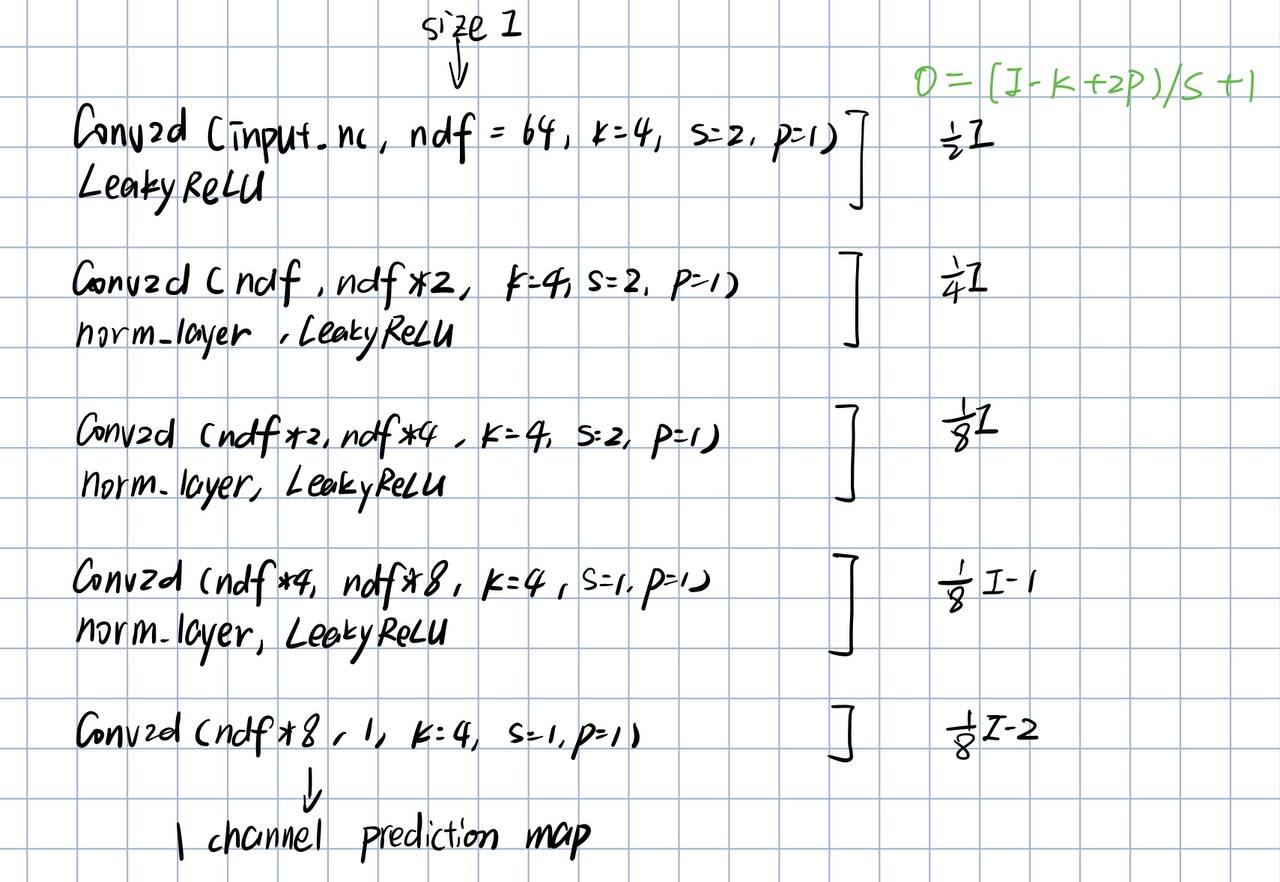 size I
↓
O = (I-K+2P)/S +1
Conv2d (input_nc, ndf = 64, k=4, s=2, p=1) ] ½I
LeakyReLU
Conv2d (ndf, ndf*2, k=4, s=2, p=1) ] ¼I
norm_layer, LeakyReLU
Conv2d (ndf*2, ndf*4, k=4, s=2, p=1) ] ⅛I
norm_layer, LeakyReLU
Conv2d (ndf*4, ndf*8, k=4, s=1, p=1) ] ⅛I-1
norm_layer, LeakyReLU
Conv2d (ndf*8, 1, k=4, s=1, p=1) ] ⅛I-2
↓
1 channel prediction map